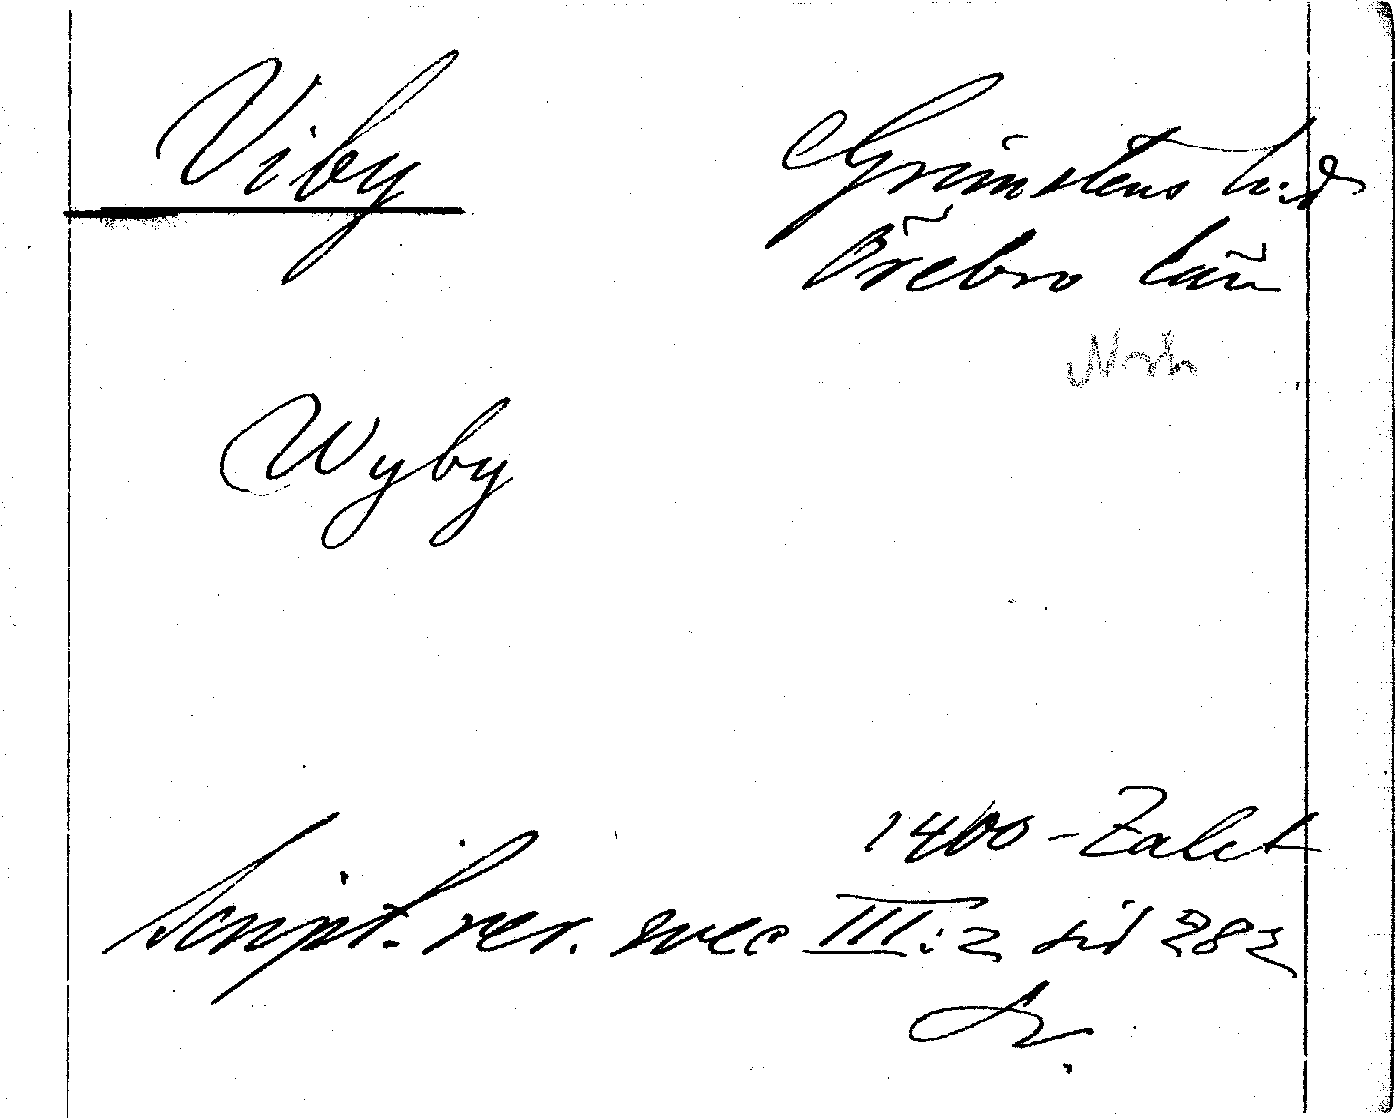 Viby
Grimstens h:d
Örebro län
Wyby
1400-talet
Script. rer. svec III:2 sid 282